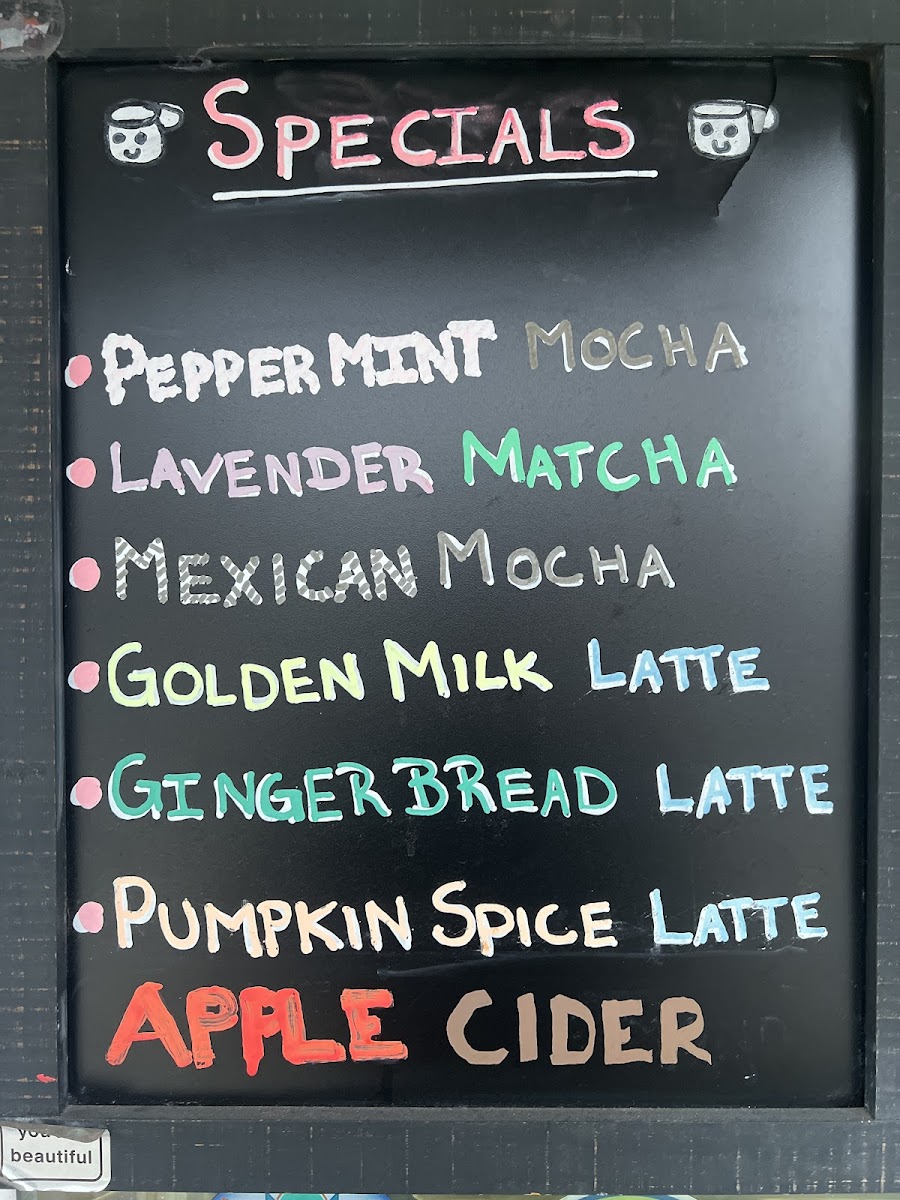 SPECIALS
PEPPERMINT MOCHA
LAVENDER MATCHA
MEXICAN MOCHA
GOLDEN MILK LATTE
GINGERBREAD LATTE
PUMPKIN SPICE LATTE
APPLE CIDER
beautiful